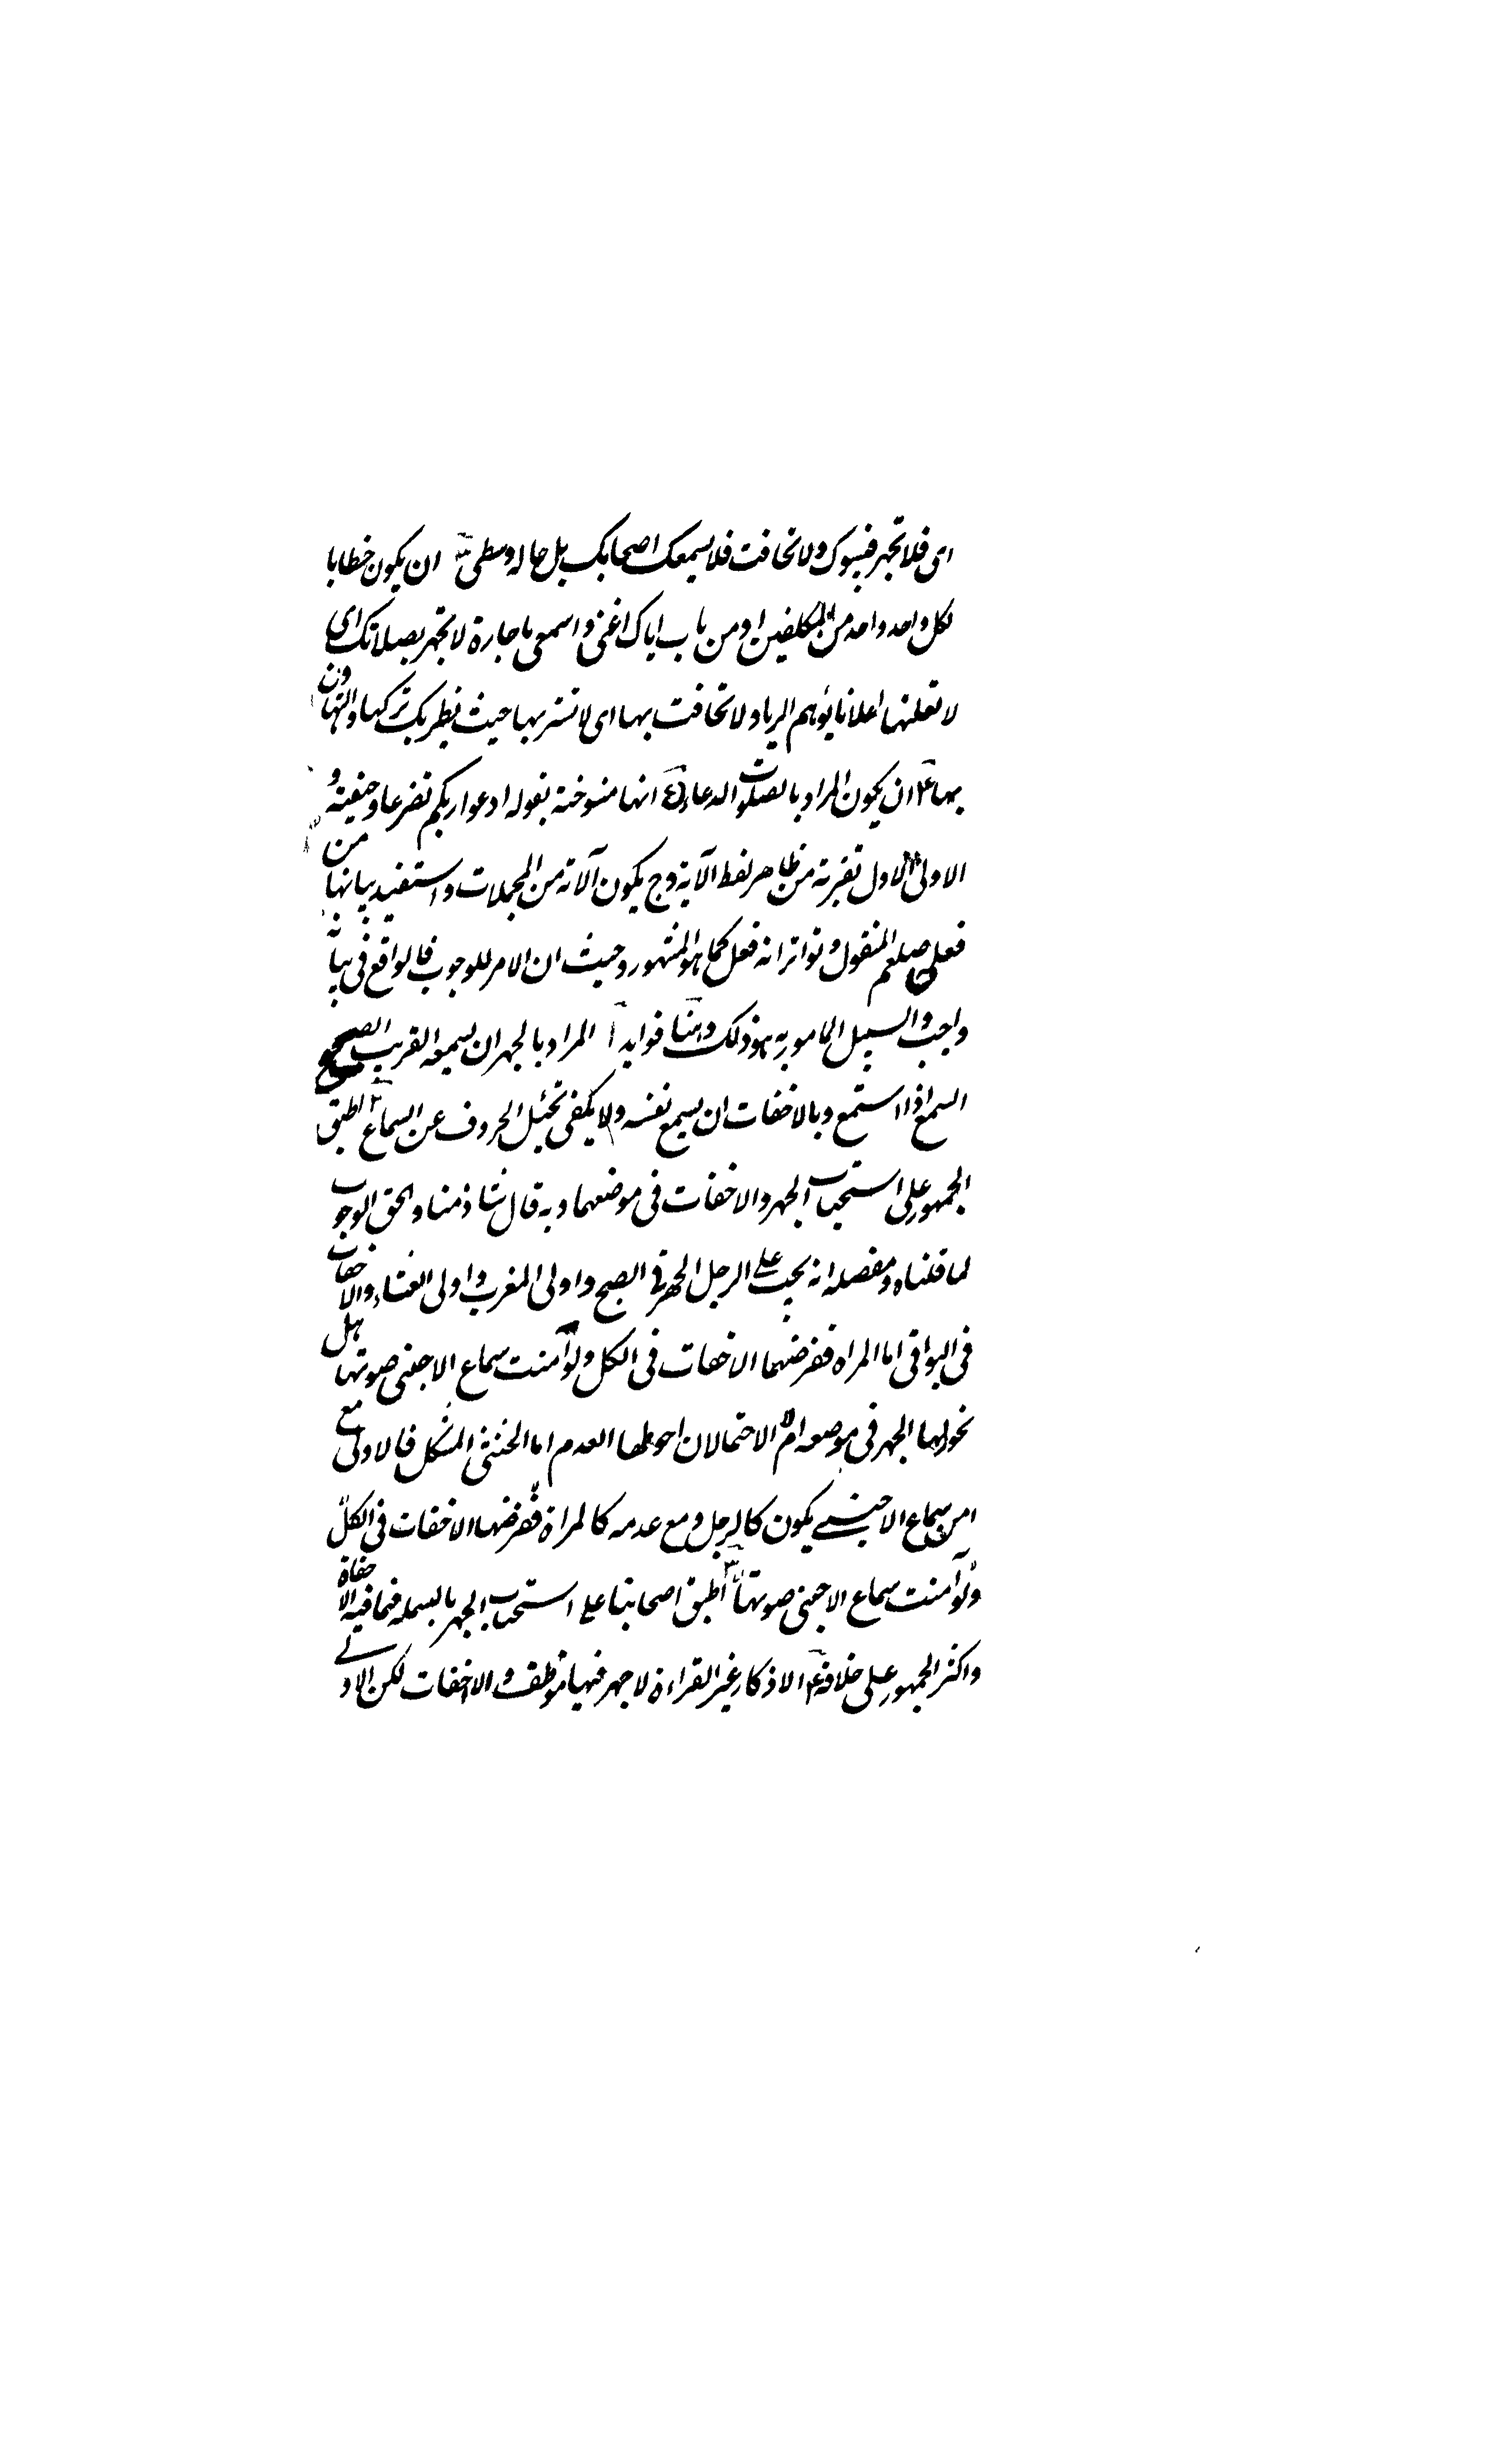 اى فلا تجهر فيسبوك ولا تخافت فلا يسمعك اصحابك بل حاله وسطى ان يكون خطابا
لكل واحد واحد من المكلفين او من باب اياك اعنى و اسمعى يا جارة لا تجهر بصلاتك اى
لا تعلنها اعلانا يوهم الريا ولا تخافت بها اى لا تستر بها حيث يظن بك تركها والتهاون
بها ٤ ان يكون المراد بالصلوت الدعاء ٥ انها منسوخة بقوله ادعوا ربكم تضرعا وخفية و
الاولى الاول لقربه من ظاهر لفظ الآية وح يكون الآية من المجملات واستفيد بيانها من
فعله صلعم المنقول تواترا انه فعل كما هو المشهور وحيث ان الامر للوجوب فالواقع فى بيانه
واجب والسبيل المامور به هو ذلك وهنا فوايد آ المراد بالجهر ان يسمعه القريب الصحيح
السمع اذا استمع وبالاخفات ان يسمع نفسه ولا يكفى تخيل الحروف عن السماع ٢ اطبق
الجمهور على استحباب الجهر والاخفات فى موضعهما وبه قال شاذ منا والحق الوجوب
لما قلناه ومفصله انه يجب على الرجل الجهر فى الصبح واولى المغرب واولى العشاء والاخفات
فى البواقى اما المراه ففرضها الاخفات فى الكل ولو آمنت سماع الاجنبى صوتها هل
يجوز لها الجهر فى موضعه ام لا الاحتمالان احوطهما العدم اما الخنثى المشكل فالاولى مع
امن سماع الاجنبى يكون كالرجل ومع عدمه كالمراة ففرضها الاخفات فى الكل
ولو آمنت سماع الاجنبى صوتها ٣ اطبق اصحابنا على استحباب الجهر بالبسمله فيما فيه الاخفاة
واكثر الجمهور على خلافه ٤ الاذكار غير القراءة لا جهر فيها موظف والاخفات لكن الاولى